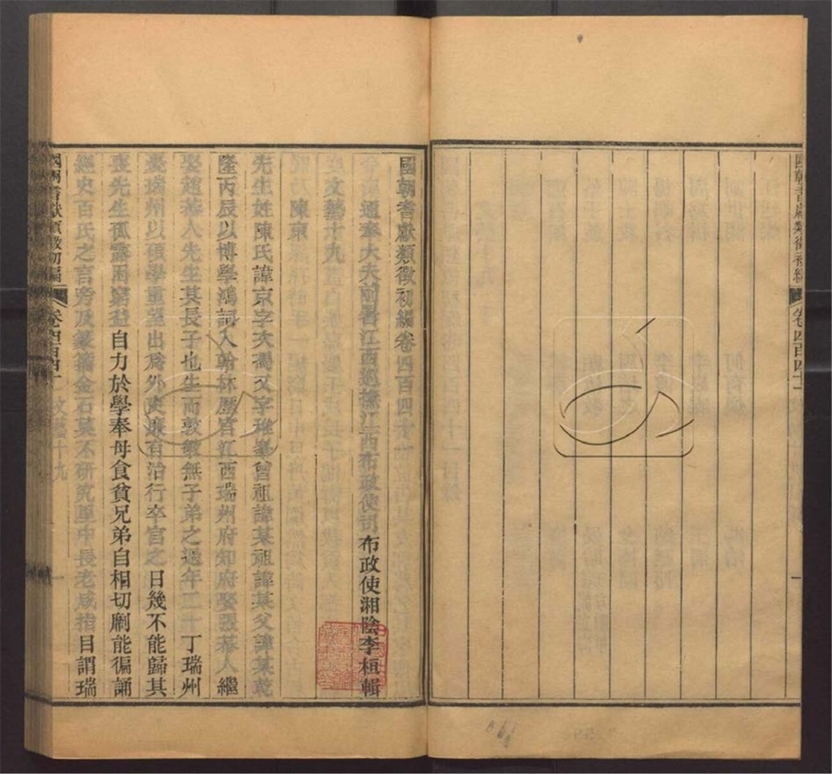 國朝耆獻類徵初編
卷四百四十一
國朝耆獻類徵初編卷四百四十
通奉大夫前署江西巡撫江西布政使司布政使湘陰李桓輯
文藝十九
陳京
先生姓陳氏諱京字大碣父字雅峯曾祖諱某祖諱某父諱某乾
隆丙辰以博學鴻詞入翰林歷官江西瑞州府知府娶孺人繼
娶趙孺人先生其長子也生而敦敏無子弟之過年二十丁瑞州
憂瑞州以碩學重望出為外吏廉有治行卒官之日幾不能歸其
喪先生孤露困窮益自力於學奉母食貧兄弟自相切劘能徧誦
經史百氏之言旁及篆籀金石莫不研究里中長老咸指目謂瑞
國朝耆獻類徵初編
卷四百四十
文藝十九
一